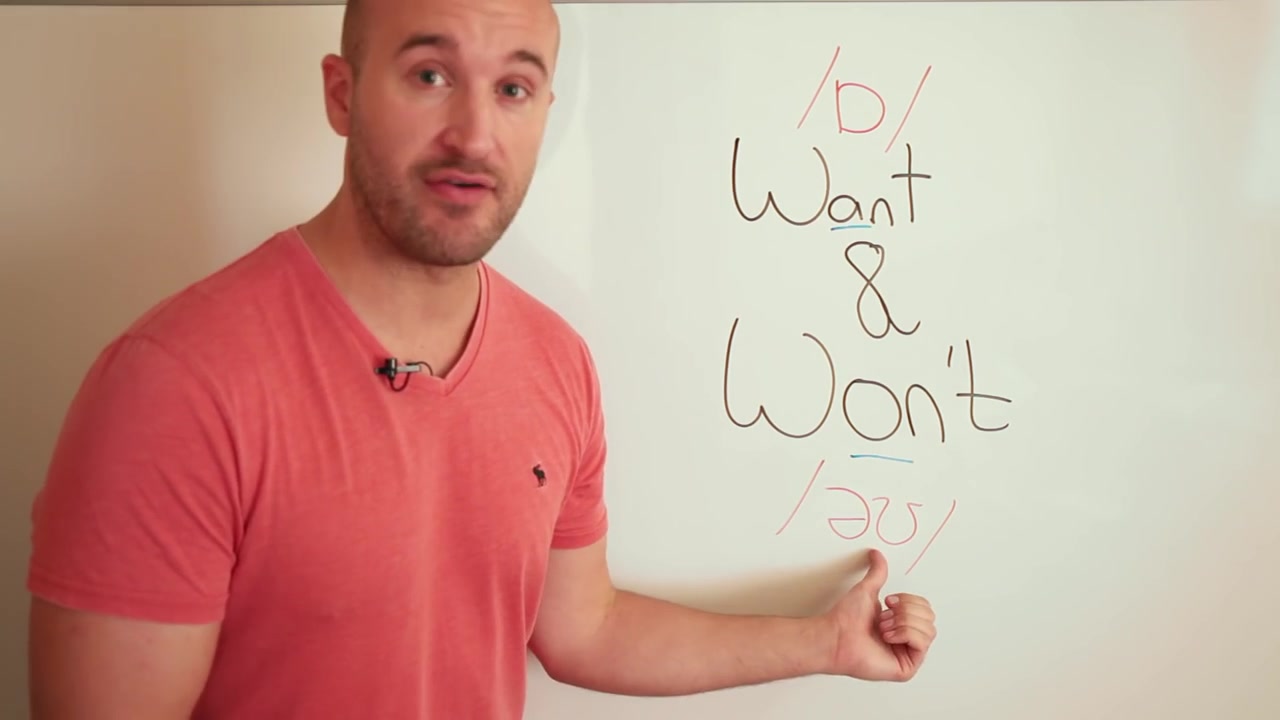 /ɒ/
Want
&
Won't
/əʊ/